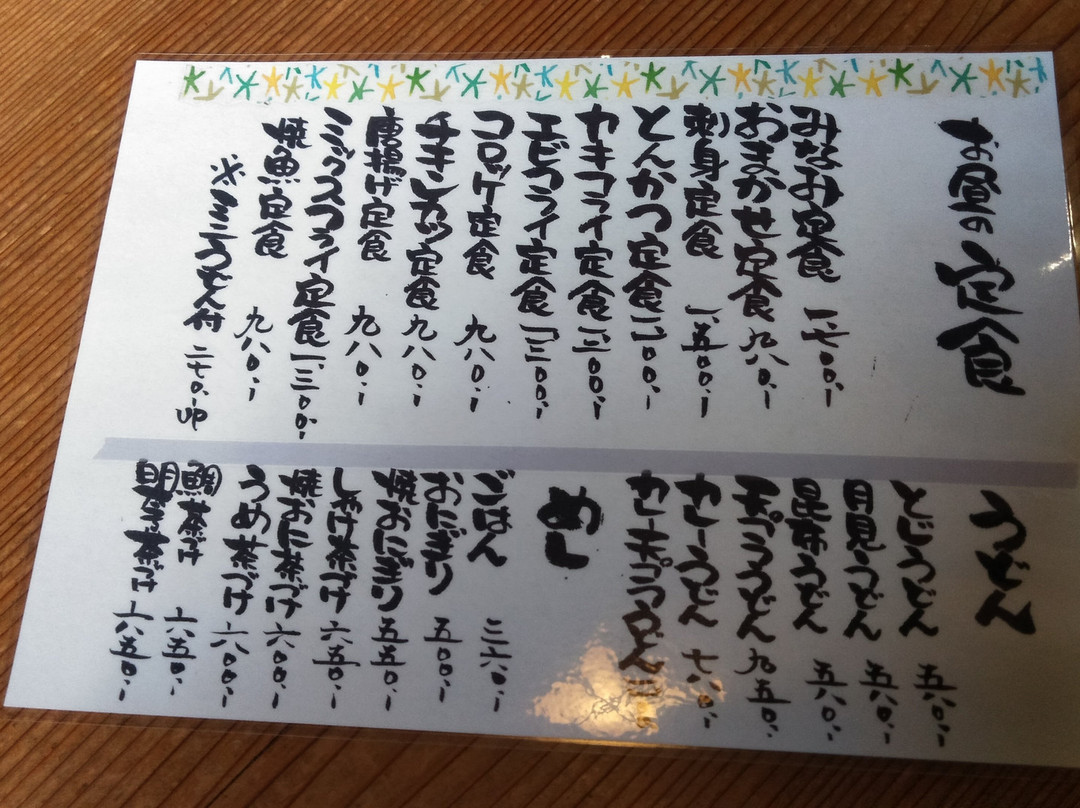 お昼の定食
みなみ定食 一、七〇〇、ー
おまかせ定食 九八〇、ー
刺身定食 一、五〇〇、ー
とんかつ定食
カキフライ定食
エビフライ定食
コロッケ定食 九八〇、ー
チキンカツ定食 九八〇、ー
唐揚げ定食 九八〇、ー
ミックスフライ定食 一、三〇〇、ー
焼魚定食 九八〇、ー
※ミニうどん付 二七〇、ーUP
うどん
とじうどん 五八〇、ー
月見うどん 五八〇、ー
昆布うどん 五八〇、ー
天プラうどん 九五〇、ー
カレーうどん 七八〇、ー
カレー天プラうどん
めし
ごはん 二六〇、ー
おにぎり 五〇〇、ー
焼おにぎり 五五〇、ー
しゃけ茶づけ 六五〇、ー
焼おに茶づけ 六〇〇、ー
うめ茶づけ 六〇〇、ー
鯛茶づけ 六五〇、ー
明太茶づけ 六五〇、ー